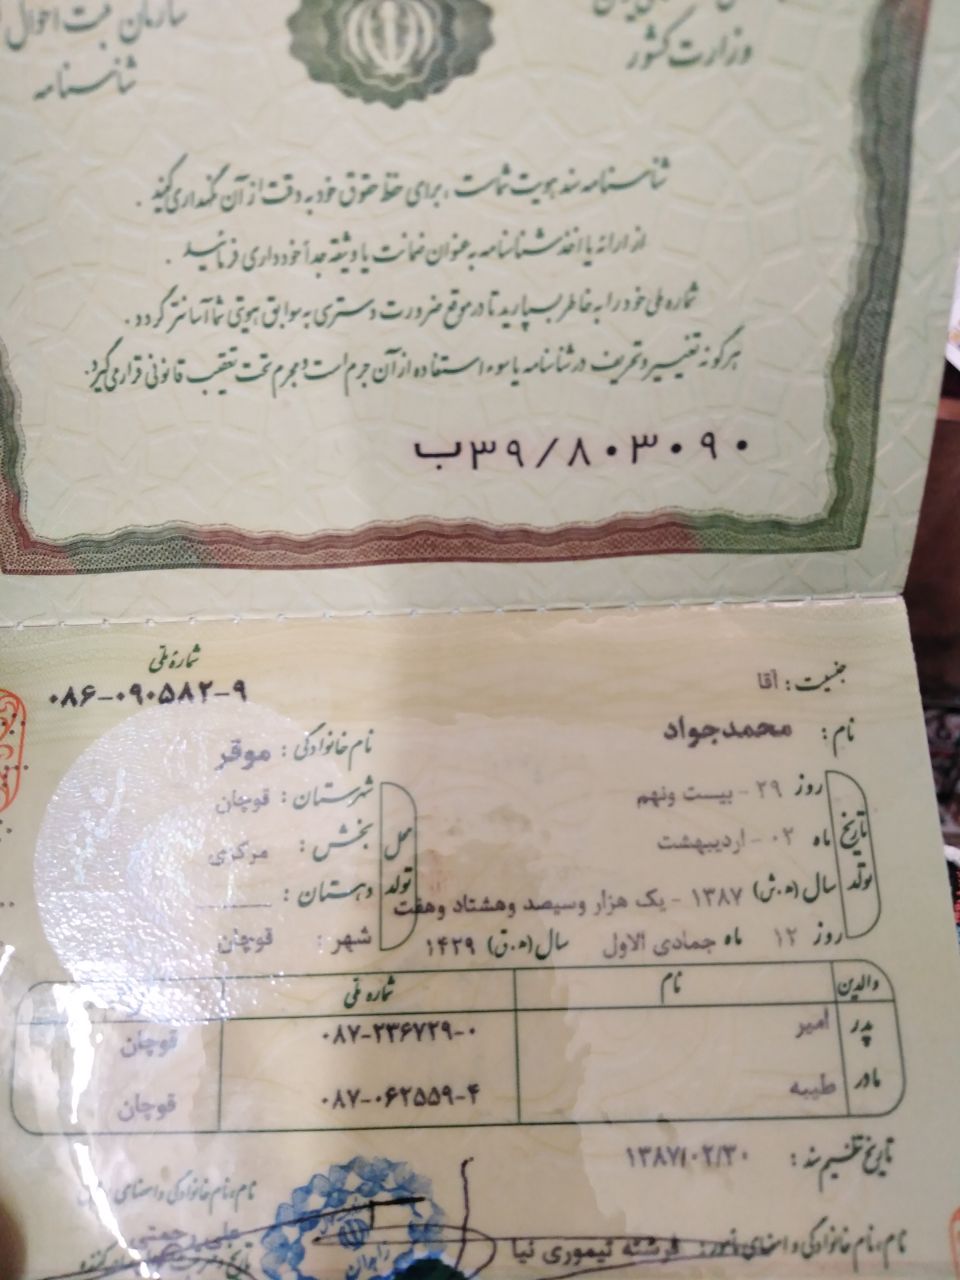 سازمان ثبت احوال
شناسنامه
وزارت کشور
شناسنامه سند هویت شماست، برای حفظ حقوق خود به دقت از آن نگهداری کنید.
از ارائه یا اخذ شناسنامه به عنوان ضمانت یا وثیقه جداً خودداری فرمائید.
شماره ملی خود را به خاطر بسپارید تا در موقع ضرورت دسترسی به سوابق هویتی شما آسانتر گردد.
هرگونه تغییر و تحریف در شناسنامه یا سوء استفاده از آن جرم است و مجرم تحت تعقیب قانونی قرار می‌گیرد.
ب۳۹/۸۰۳۰۹۰
شمارهٔ ملی
۰۸۶-۰۹۰۵۸۲-۹
جنسیت: آقا
نام: محمدجواد
نام خانوادگی: موقر
تاریخ تولد
روز ۲۹ - بیست ونهم
ماه ۰۲ - اردیبهشت
سال (ه.ش) ۱۳۸۷ - یک هزار وسیصد وهشتاد وهفت
روز ۱۲ ماه جمادی الاول سال (ه.ق) ۱۴۲۹
محل تولد
شهرستان: قوچان
بخش: مرکزی
دهستان:
شهر: قوچان
والدین نام شماره ملی
پدر امیر ۰۸۷-۲۳۶۷۲۹-۰ قوچان
مادر طیبه ۰۸۷-۰۶۲۵۵۹-۴ قوچان
تاریخ تنظیم سند: ۱۳۸۷/۰۲/۳۰
نام، نام خانوادگی و امضای مأمور: فرشته تیموری نیا
نام، نام خانوادگی و امضای
علی رحمتی